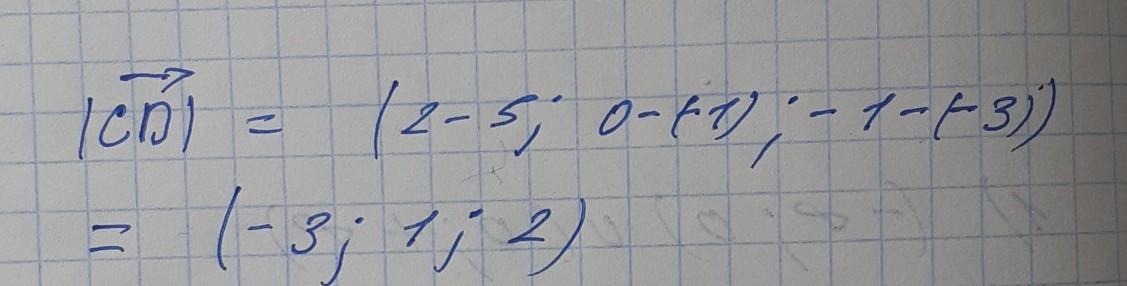 |CD⃗| = (2-5; 0-(-1); -1-(-3))
= (-3; 1; 2)